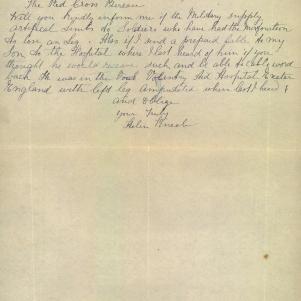 The Red Cross Bureau
Will you Kindly inform me if the Military supply
artifical limbs to Soldiers who have had the misfortune
to lose an Leg. Also if I send a prepaid Cable to my
Son to the Hospital where I last heard of him if you
thought he would receive such and be able to Cable word
back He was in the Voluntry Aid Hospital Exeter
England with left leg amputated when last I heard
and Oblige
your Truly
Helen